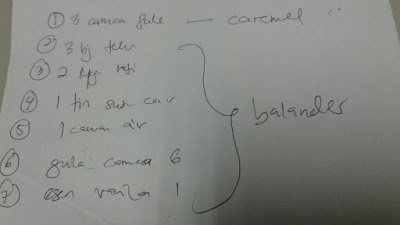 ① 3 camca gula — caramel
② 3 bj telur
③ 2 kpg roti
④ 1 tin susu cair
⑤ 1 cawan air
⑥ gula camca 6
⑦ esen vanila 1
balander